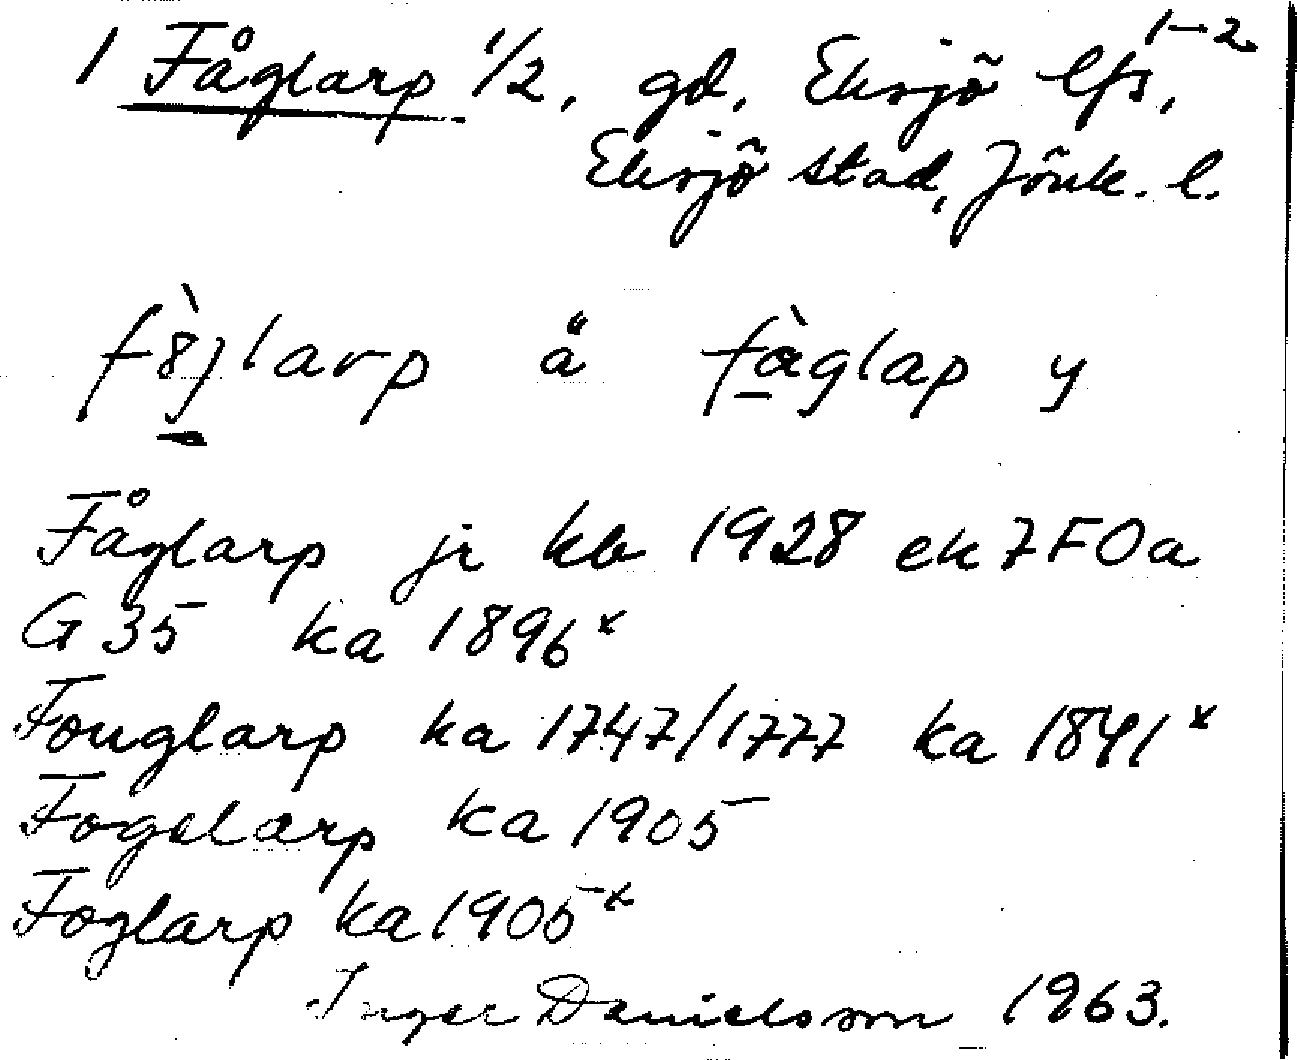 1 Fåglarp 1/2, gd, Eksjö lfs, 1-2
Eksjö stad, Jönk. l.
f8̀glarp ä fàglap y
Fåglarp jr kb 1928 ek 7F0a
G35 ka 1896x
Fouglarp ka 1747/1777 ka 1841x
Fogelarp ka 1905
Foglarp ka 1905x
Inger Danielsson 1963.